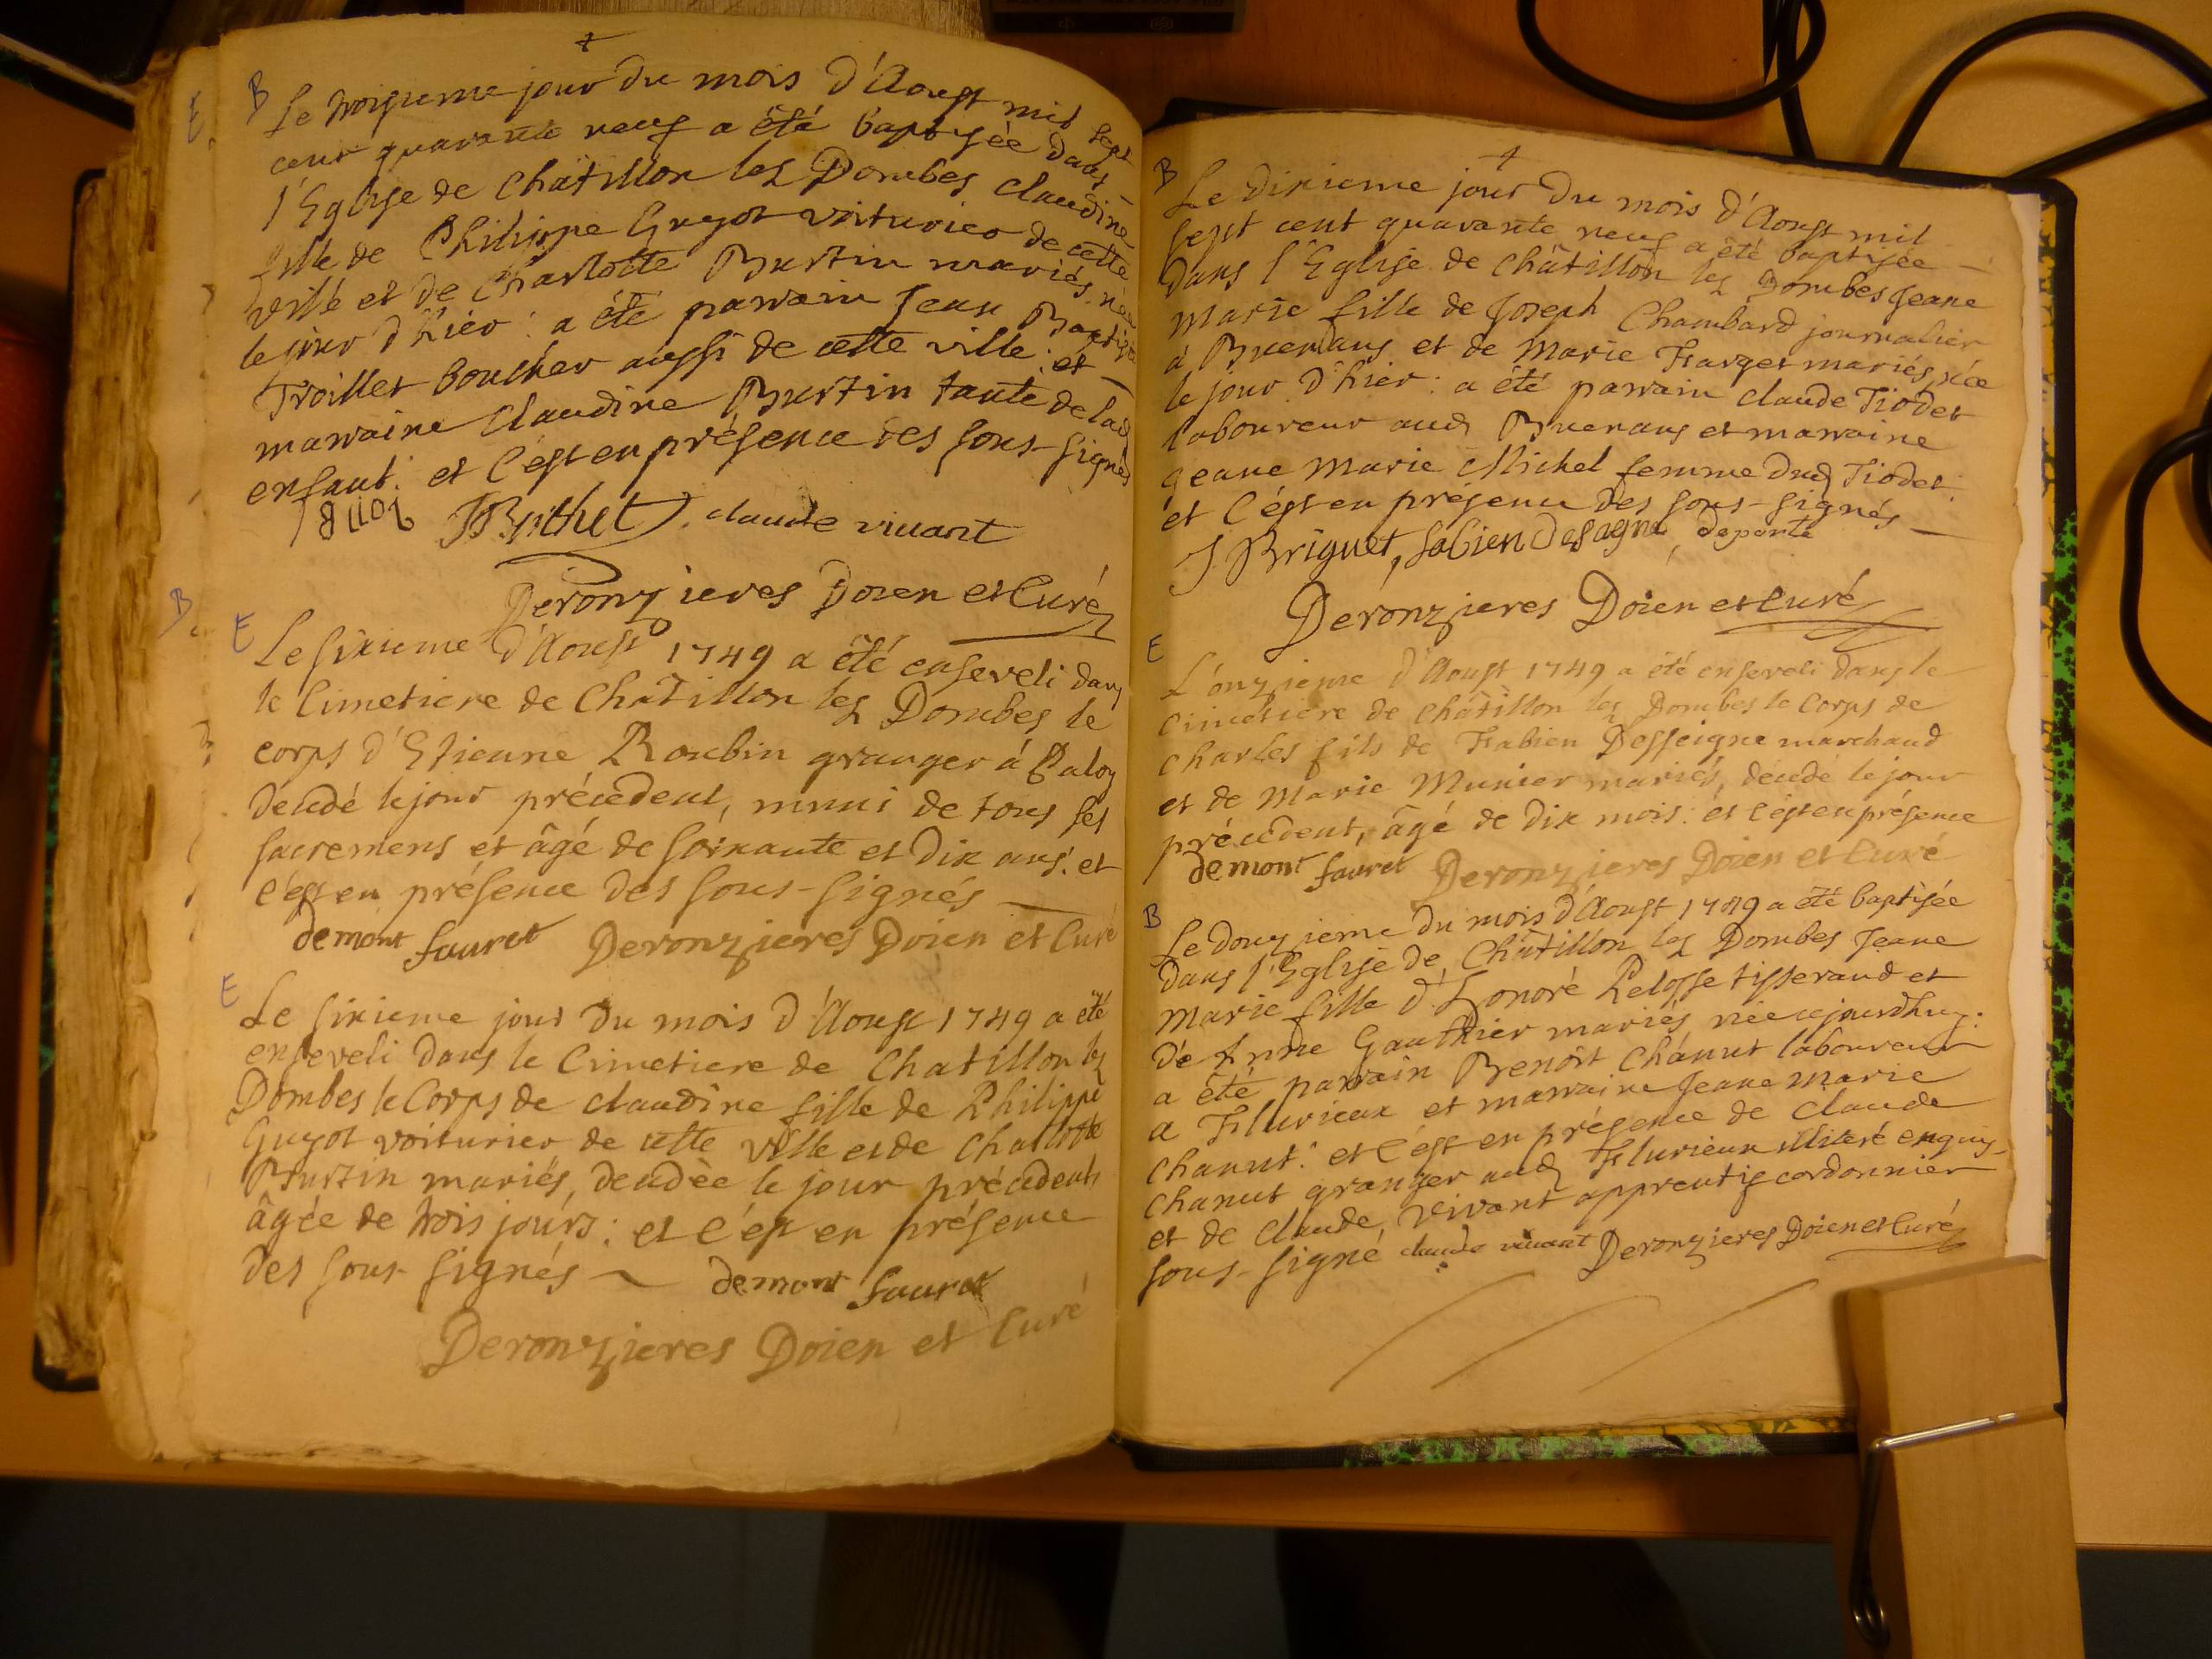 B Le troisieme jour du mois d'Aoust mil sept
cent quarante neuf a été baptisée dans
l'Eglise de Châtillon les Dombes claudine
fille de Philippe Guyot voiturier de cette
ville et de Charlotte Burtin mariés, née
le jour d'hier : a été parrain Jean Baptiste
Troillet boucher aussi de cette ville : et
marraine Claudine Burtin tante de lad
enfant : et c'est en présence des sous-signés
claude vivant
Deronzieres Doien et Curé
E Le sixieme d'Aoust 1749 a été enseveli dans
le Cimetiere de Châtillon les Dombes le
corps d'Etienne Roubin granger à
decedé le jour précedent, muni de tous ses
sacremens et âgé de soixante et dix ans : et
c'est en présence des sous-signés
demont fauret Deronzieres Doien et Curé
E Le sixieme jour du mois d'Aoust 1749 a été
enseveli dans le Cimetiere de Chatillon les
Dombes le Corps de claudine fille de Philippe
Guyot voiturier de cette ville et de Charlotte
Burtin mariés, decedée le jour précedent
âgée de trois jours : et c'est en présence
des sous-signés demont fauret
Deronzieres Doien et Curé
B Le dixieme jour du mois d'Aoust mil
sept cent quarante neuf a été baptisée
dans l'Eglise de Châtillon les Dombes Jeane
Marie fille de Joseph Chambard journalier
à Buenans et de Marie Farget mariés, née
le jour d'hier : a été parrain claude Tiodet
laboureur aud Buenans et marraine
jeane Marie Michel femme dud Tiodet :
et c'est en présence des sous-signés
J Briguet, fabien desagne deporte
Deronzieres Doien et Curé
E L'onzieme d'Aoust 1749 a été enseveli dans le
cimetiere de Châtillon les Dombes le Corps de
Charles fils de Fabien Desseigne marchand
et de Marie Munier mariés, decedé le jour
précedent, âgé de dix mois : et c'est en présence
demont fauret Deronzieres Doien et Curé
B Le douzieme du mois d'Aoust 1749 a été baptisée
dans l'Eglise de Châtillon les Dombes Jeane
Marie fille d'Honoré Pelosse tisserand et
de Anne Gauthier mariés, née cejourdhuy :
a été parrain Benoit Chanut laboureur
a Flurieux et marraine Jeane Marie
Chanut : et c'est en présence de Claude
Chanut granger aud Flurieux illiteré enquis
et de Claude vivant apprentif cordonnier
sous-signé claude vivant Deronzieres Doien et Curé